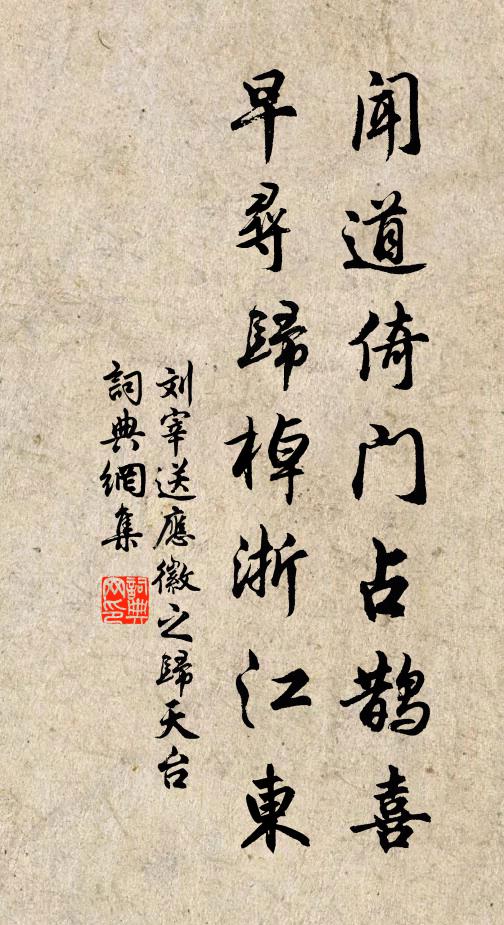 闻道倚门占鹊喜
早尋歸棹浙江東
刘宰送應徽之歸天台
詞典網集
詞典
网印